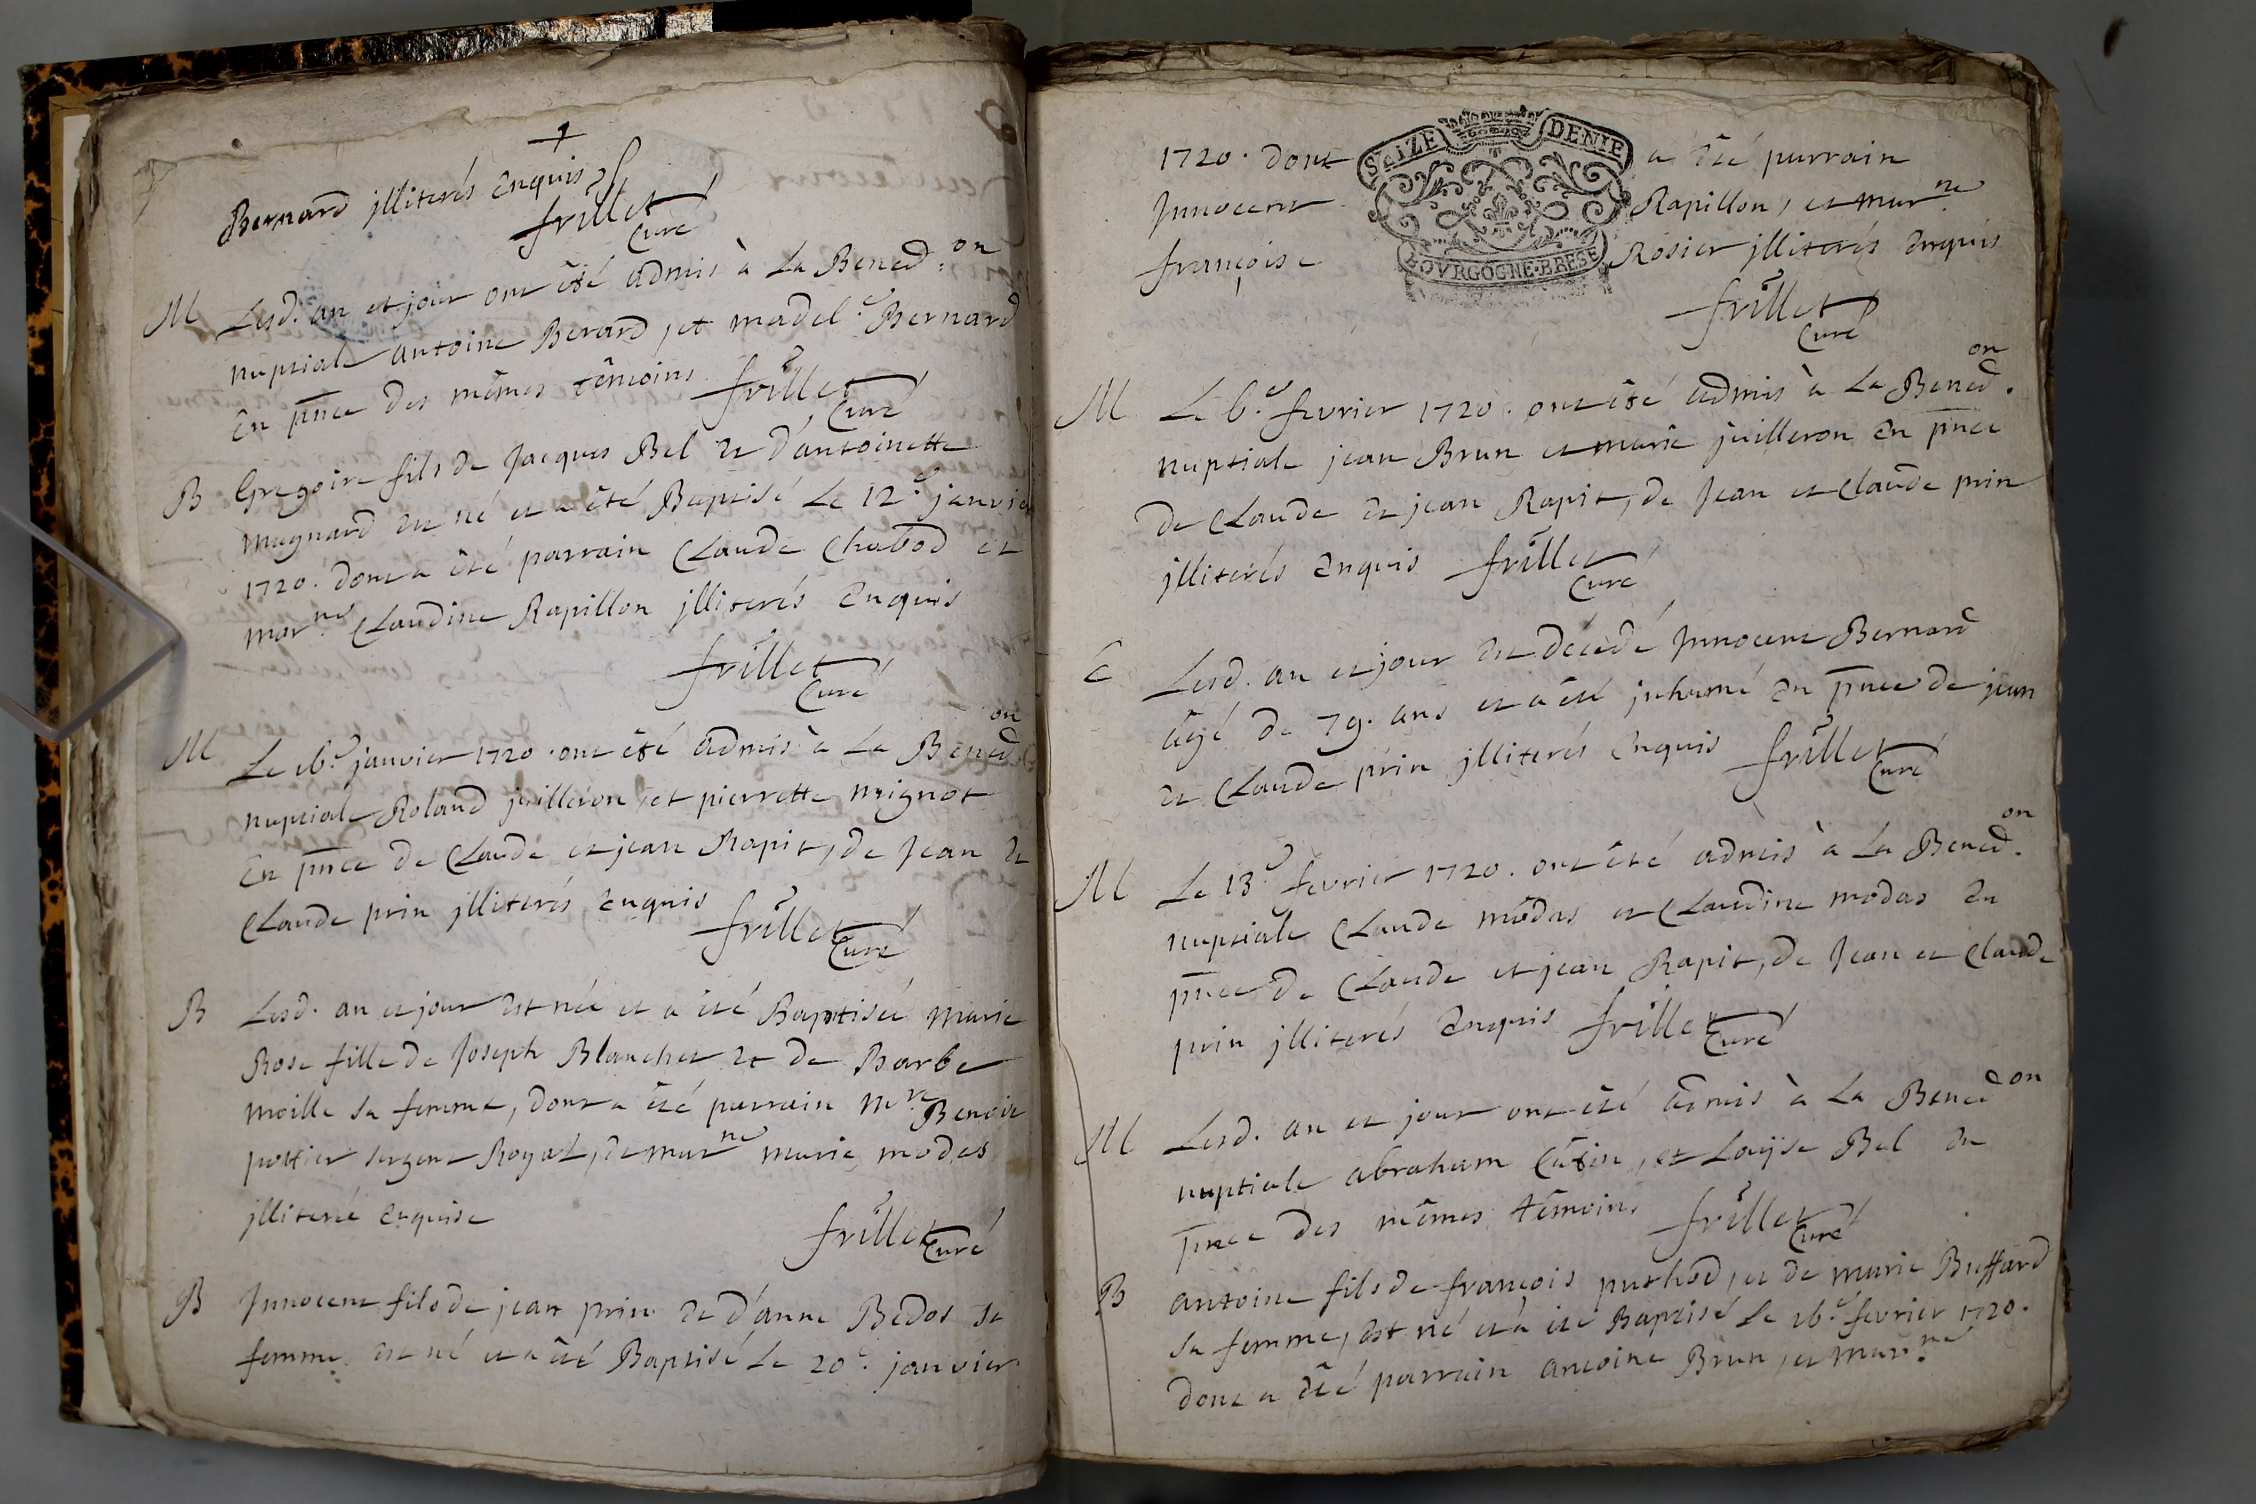 Bernard jlliterés enquis
frillet
Curé
M Lesd. an et jour ont été admis à La Bened.on
nuptiale antoine Berard, et madel.e Bernard
en pnce des mêmes têmoins frillet
Curé
B Gregoire fils de Jacques Bel et d'antoinette
mugnard est né et a été Baptisé Le 12.e janvier
1720. dont a été parrain Claude Chabod et
mar.ne Claudine Rapillon jlliterés enquis
frillet
Curé
M Le 16.e janvier 1720. ont été admis à La Bened.on
nuptiale Roland juilleron, et pierrette mignot
en pnce de Claude et jean Rapit, de Jean et
Claude prin jlliterés, enquis
frillet
Curé
B Lesd. an et jour est née et a été Baptisée Marie
Rose fille de Joseph Blanchet et de Barbe
moille sa femme, dont a été parrain M.re Benoit
pottier sergent Royal, et mar.ne marie modas
jlliterée enquise
frillet
Curé
B Jnnocent fils de jean prin et d'anne Bedos sa
femme, est né et a été Baptisé Le 20.e janvier
SEIZE DENIE
1720. dont a été parrain
Jnnocent Rapillon, et mar.ne
françoise Rosier jlliterés enquis
BOVRGOGNE·BRESE
frillet
Curé
M Le 6.e fevrier 1720. ont été admis à La Bened.on
nuptiale jean Brun et marie juilleron en pnce
de Claude et jean Rapit, de Jean et Claude prin
jlliterés enquis frillet
Curé
E Lesd. an et jour est décedé Jnnocent Bernard
âgé de 79. ans et a été jnhumé en pnce de jean
et Claude prin jlliterés enquis frillet
Curé
M Le 13.e fevrier 1720. ont été admis à La Bened.on
nuptiale Claude modas et Claudine modas en
pnce de Claude et jean Rapit, de Jean et Claude
prin jlliterés enquis frillet
Curé
M Lesd. an et jour ont été admis à La Bened.on
nuptiale abraham Cutin, et Louyse Bel en
pnce des mêmes têmoins frillet
Curé
B antoine fils de françois puthod, et de marie Buffard
sa femme, est né et a été Baptisé Le 16.e fevrier 1720.
dont a été parrain antoine Brun, et mar.ne